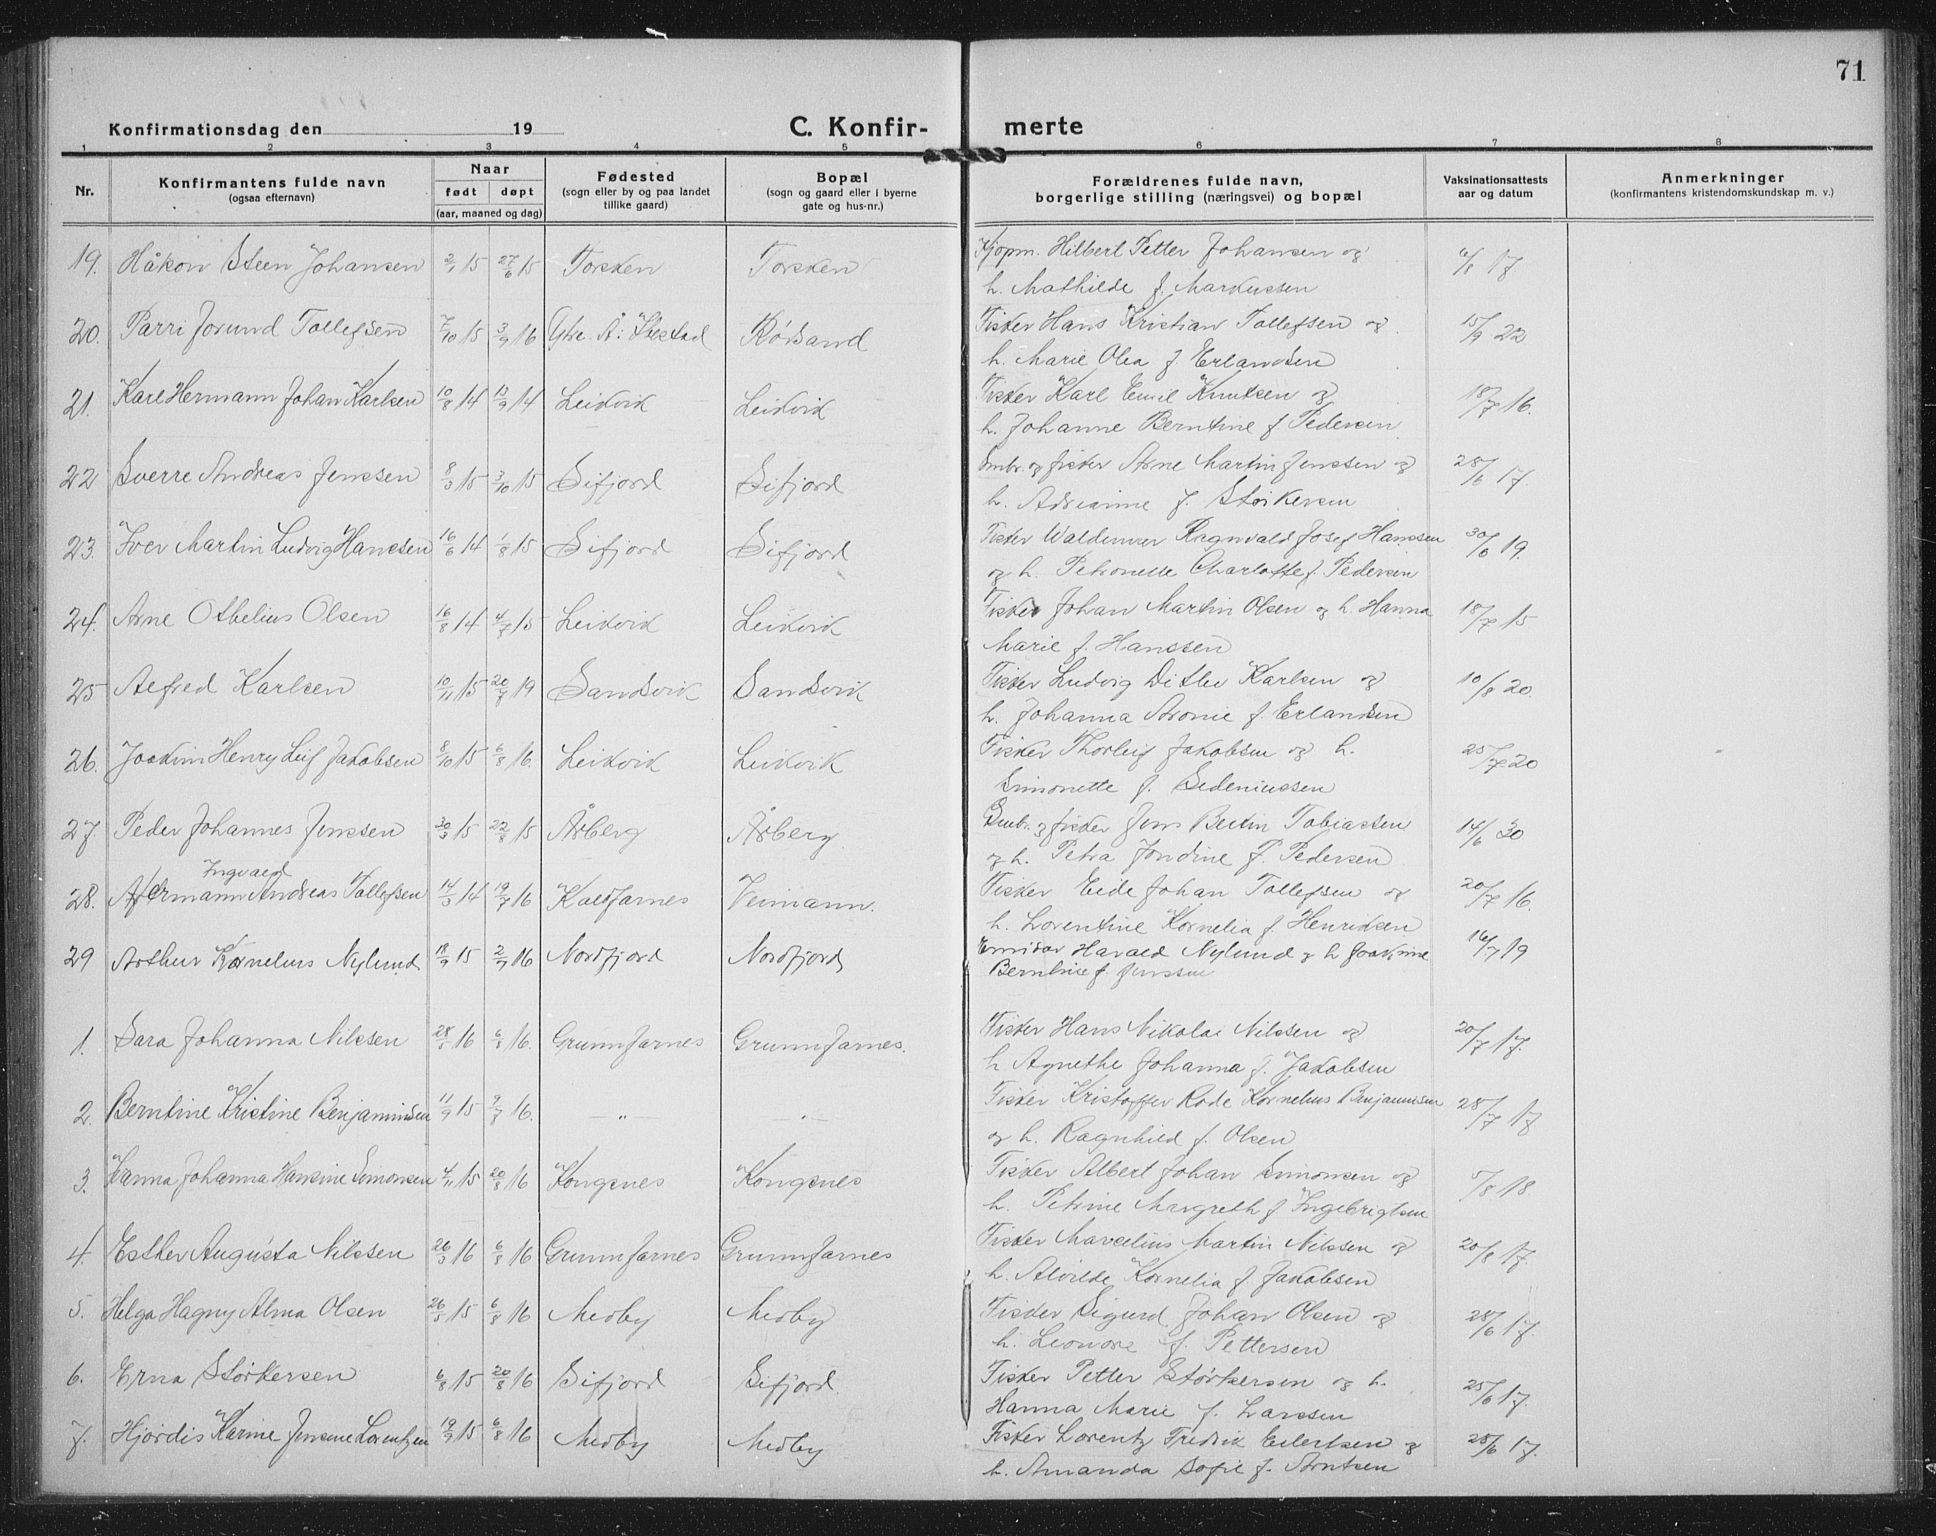 71
Konfirmationsdag den 19 C. Konfir- merte
1 2 3 4 5 6 7 8
Nr. Konfirmantens fulde navn (ogsaa efternavn) Naar født døpt (aar, maaned og dag) Fødested (sogn eller by og paa landet tillike gaard) Bopæl (sogn og gaard eller i byerne gate og hus-nr.) Forældrenes fulde navn, borgerlige stilling (næringsvei) og bopæl Vaksinationsattests aar og datum Anmerkninger (konfirmantens kristendomskundskap m. v.)
19. Håkon Steen Johansen 2/1 15 27/6 15 Torsken Torsken Kjøpm. Hilbert Petter Johansen og 6/8 17
h. Mathilde f. Markussen
20. Parri Jorund Tollefsen 7/10 15 3/9 16 Rødsand Fisker Hans Kristian Tollefsen og 15/9 22
h. Marie Olea f. Erlandsen
21. Kare Hermann Johan Karlsen 10/8 14 13/9 14 Leikvik Leikvik Fisker Karl Emil Knutsen og 18/7 16.
h. Johanne Berntine f Pedersen
22 Sverre Andreas Jenssen 8/3 15 3/10 15 Sifjord Sifjord Smbr. og fisker Arne Martin Jenssen og 28/6 17.
h. Adrianne f. Størkersen
23. Iver Martin Ludvig Hanssen 16/6 14 1/8 15 Sifjord Sifjord Fisker Waldemar Ragnvald Josef Hanssen 30/6 19.
og h. Petronelle Charlotte f. Pedersen
24. Arne Othelius Olsen 16/8 14 4/7 15 Leikvik Leikvik Fisker Johan Martin Olsen og h. Hanna 18/7 15
Marie f. Hanssen
25 Alfred Karlsen 10/11 15 20/7 19 Sandsvik Sandsvik Fisker Ludvig Ditlev Karlsen og 10/8 20.
h. Johanna Aronie f. Erlandsen
26. Joakim Henry Leif Jakobsen 8/10 15 6/8 16. Leikvik Leikvik Fisker Thorleif Jakobsen og h. 25/7 20
Simonette f. Sedeniussen
27. Peder Johannes Jenssen 30/3 15 22/8 15 Årberg Årberg. Smbr. og fisker Jens Bertin Tobiassen 14/6 30
og h. Petra Jondine f. Pedersen
Ingvald
28. Hermann Andreas Tollefsen 14/3 14 19/7 16 Kaldfarnes Veimann. Fisker Eide Johan Tollefsen og 20/7 16.
h. Lorentine Kornelia f. Henriksen
29 Arthur Kornelius Nylund 18/9 15 2/7 16 Nordfjord Nordfjord Harald Nylund og h Joakime 16/7 19
Berntine f. Jenssen
1. Sara Johanna Nilssen 28/1 16 6/8 16. Grunnfarnes Grunnfarnes. Fisker Hans Nikolai Nilssen og 20/7 17.
h Agnethe Johanna f. Jakobsen
2. Berntine Kristine Benjaminsen 11/9 15 9/7 16. — „ — — „ — Fisker Kristoffer Rode Kornelius Benjaminsen 28/7 17
og h. Ragnhild f. Olsen
3. Hanna Johanna Hansine Simonsen 4/11 15 20/8 16 Kongsnes Kongsnes Fisker Albert Johan Simonsen og 5/8 18
h. Petrine Margreth f Ingebrigtsen
4. Esther Augusta Nilssen 26/3 16 6/8 16 Grunnfarnes Grunnfarnes Fisker Marcelius Martin Nilssen og 20/8 17.
h. Alvilde Kornelia f. Jakobsen
5. Helga Hagny Alma Olsen 26/5 15 6/8 16 Medby Medby Fisker Sigurd Johan Olsen og 28/6 17.
h. Leonore f. Pettersen
6. Erna Størkersen 6/8 15 20/8 16 Sifjord Sifjord. Fisker Petter Størkersen og h. 25/6 17.
Hanna Marie f. Larssen
7. Hjørdis Karine Jensine Lorentzen 19/9 15 6/8 16 Medby Medby Fisker Lorentz Fredrik Eilertsen og 28/6 17.
h. Amanda Sofie f. Arntsen